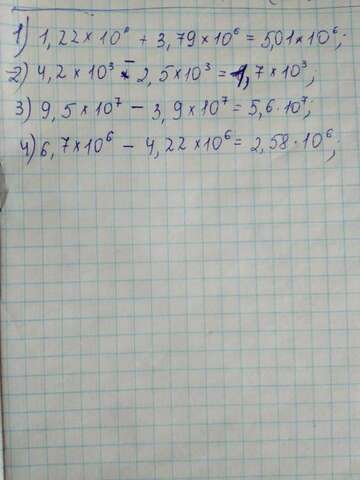 1) 1,22×10⁶ + 3,79×10⁶ = 5,01×10⁶;
2) 4,2×10³ - 2,5×10³ = 1,7×10³;
3) 9,5×10⁷ - 3,9×10⁷ = 5,6·10⁷;
4) 6,7×10⁶ - 4,22×10⁶ = 2,58·10⁶;